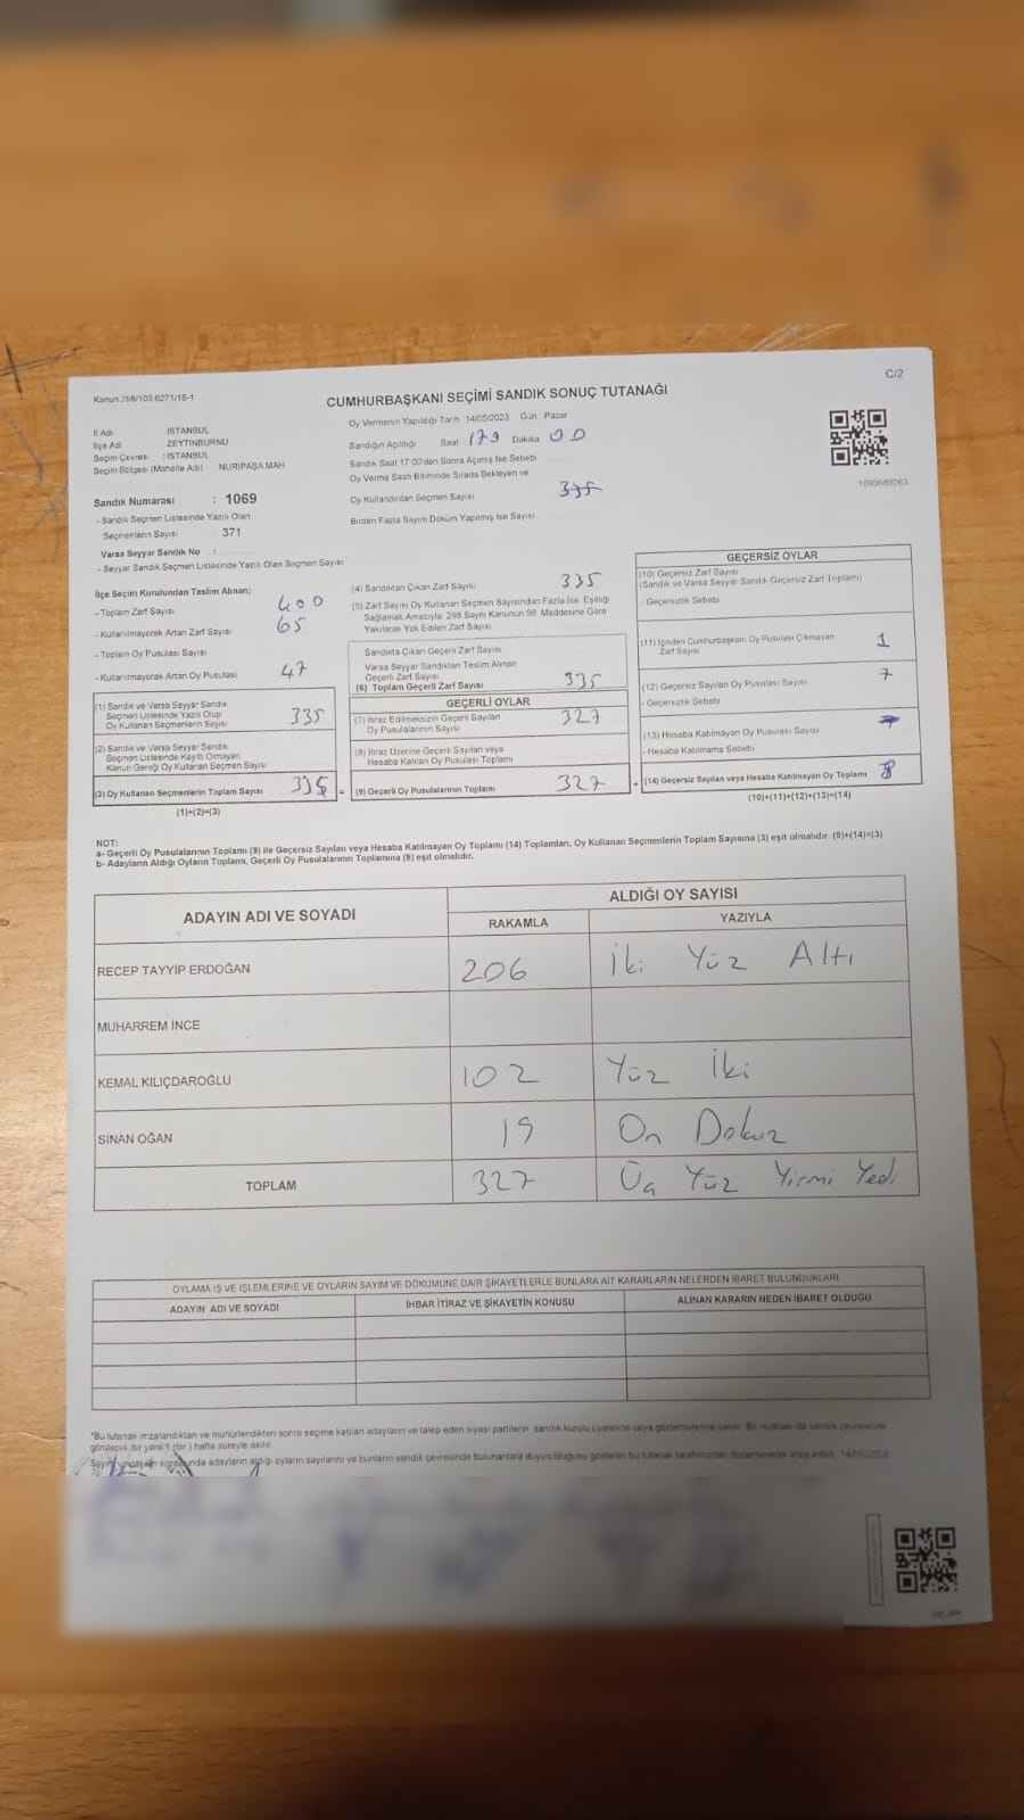 Kanun
C/2
CUMHURBAŞKANI SEÇİMİ SANDIK SONUÇ TUTANAĞI
İl Adı : İSTANBUL
İlçe Adı : ZEYTİNBURNU
Seçim Çevresi : İSTANBUL
Seçim Bölgesi (Mahalle Adı) : NURİPAŞA MAH
Oy Vermenin Yapıldığı Tarih 14/05/2023 Gün : Pazar
Sandığın Açıldığı Saat Dakika 00
Sandık Saat 17:00'den Sonra Açılmış İse Sebebi
Oy Verme Saati Bitiminde Sırada Bekleyen ve
Oy Kullandırılan Seçmen Sayısı
Birden Fazla Sayım Döküm Yapılmış İse Sayısı
Sandık Numarası : 1069
- Sandık Seçmen Listesinde Yazılı Olan
Seçmenlerin Sayısı 371
Varsa Seyyar Sandık No :
- Seyyar Sandık Seçmen Listesinde Yazılı Olan Seçmen Sayısı
İlçe Seçim Kurulundan Teslim Alınan;
- Toplam Zarf Sayısı 400
- Kullanılmayarak Artan Zarf Sayısı 65
- Toplam Oy Pusulası Sayısı
- Kullanılmayarak Artan Oy Pusulası 47
(1) Sandık ve Varsa Seyyar Sandık
Seçmen Listesinde Yazılı Olup
Oy Kullanan Seçmenlerin Sayısı 335
(2) Sandık ve Varsa Seyyar Sandık
Seçmen Listesinde Kayıtlı Olmayan
Kanun Gereği Oy Kullanan Seçmen Sayısı
(3) Oy Kullanan Seçmenlerin Toplam Sayısı 335
(1)+(2)=(3)
(4) Sandıktan Çıkan Zarf Sayısı 335
(5) Zarf Sayısı Oy Kullanan Seçmen Sayısından Fazla İse, Eşitliği
Sağlamak Amacıyla, 298 Sayılı Kanunun 98. Maddesine Göre
Yakılarak Yok Edilen Zarf Sayısı
Sandıkta Çıkan Geçerli Zarf Sayısı
Varsa Seyyar Sandıktan Teslim Alınan
Geçerli Zarf Sayısı
(6) Toplam Geçerli Zarf Sayısı 335
GEÇERLİ OYLAR
(7) İtiraz Edilmeksizin Geçerli Sayılan
Oy Pusulalarının Sayısı 327
(8) İtiraz Üzerine Geçerli Sayılan veya
Hesaba Katılan Oy Pusulası Toplamı
(9) Geçerli Oy Pusulalarının Toplamı 327
GEÇERSİZ OYLAR
(10) Geçersiz Zarf Sayısı
(Sandık ve Varsa Seyyar Sandık Geçersiz Zarf Toplamı)
- Geçersizlik Sebebi
(11) İçinden Cumhurbaşkanı Oy Pusulası Çıkmayan
Zarf Sayısı 1
(12) Geçersiz Sayılan Oy Pusulası Sayısı 7
- Geçersizlik Sebebi
(13) Hesaba Katılmayan Oy Pusulası Sayısı
- Hesaba Katılmama Sebebi
(14) Geçersiz Sayılan veya Hesaba Katılmayan Oy Toplamı 8
(10)+(11)+(12)+(13)=(14)
NOT:
a- Geçerli Oy Pusulalarının Toplamı (9) ile Geçersiz Sayılan veya Hesaba Katılmayan Oy Toplamı (14) Toplamları, Oy Kullanan Seçmenlerin Toplam Sayısına (3) eşit olmalıdır. (9)+(14)=(3)
b- Adayların Aldığı Oyların Toplamı, Geçerli Oy Pusulalarının Toplamına (9) eşit olmalıdır.
ADAYIN ADI VE SOYADI
ALDIĞI OY SAYISI
RAKAMLA YAZIYLA
RECEP TAYYİP ERDOĞAN 206 İki Yüz Altı
MUHARREM İNCE
KEMAL KILIÇDAROĞLU 102 Yüz İki
SİNAN OĞAN 19 On Dokuz
TOPLAM 327 Üç Yüz Yirmi Yedi
OYLAMA İŞ VE İŞLEMLERİNE VE OYLARIN SAYIM VE DÖKÜMÜNE DAİR ŞİKAYETLERLE BUNLARA AİT KARARLARIN NELERDEN İBARET BULUNDUKLARI
ADAYIN ADI VE SOYADI İHBAR İTİRAZ VE ŞİKAYETİN KONUSU ALINAN KARARIN NEDEN İBARET OLDUĞU
*Bu tutanak imzalandıktan ve mühürlendikten sonra seçime katılan adayların ve talep eden siyasi partilerin sandık kurulu üyelerine veya